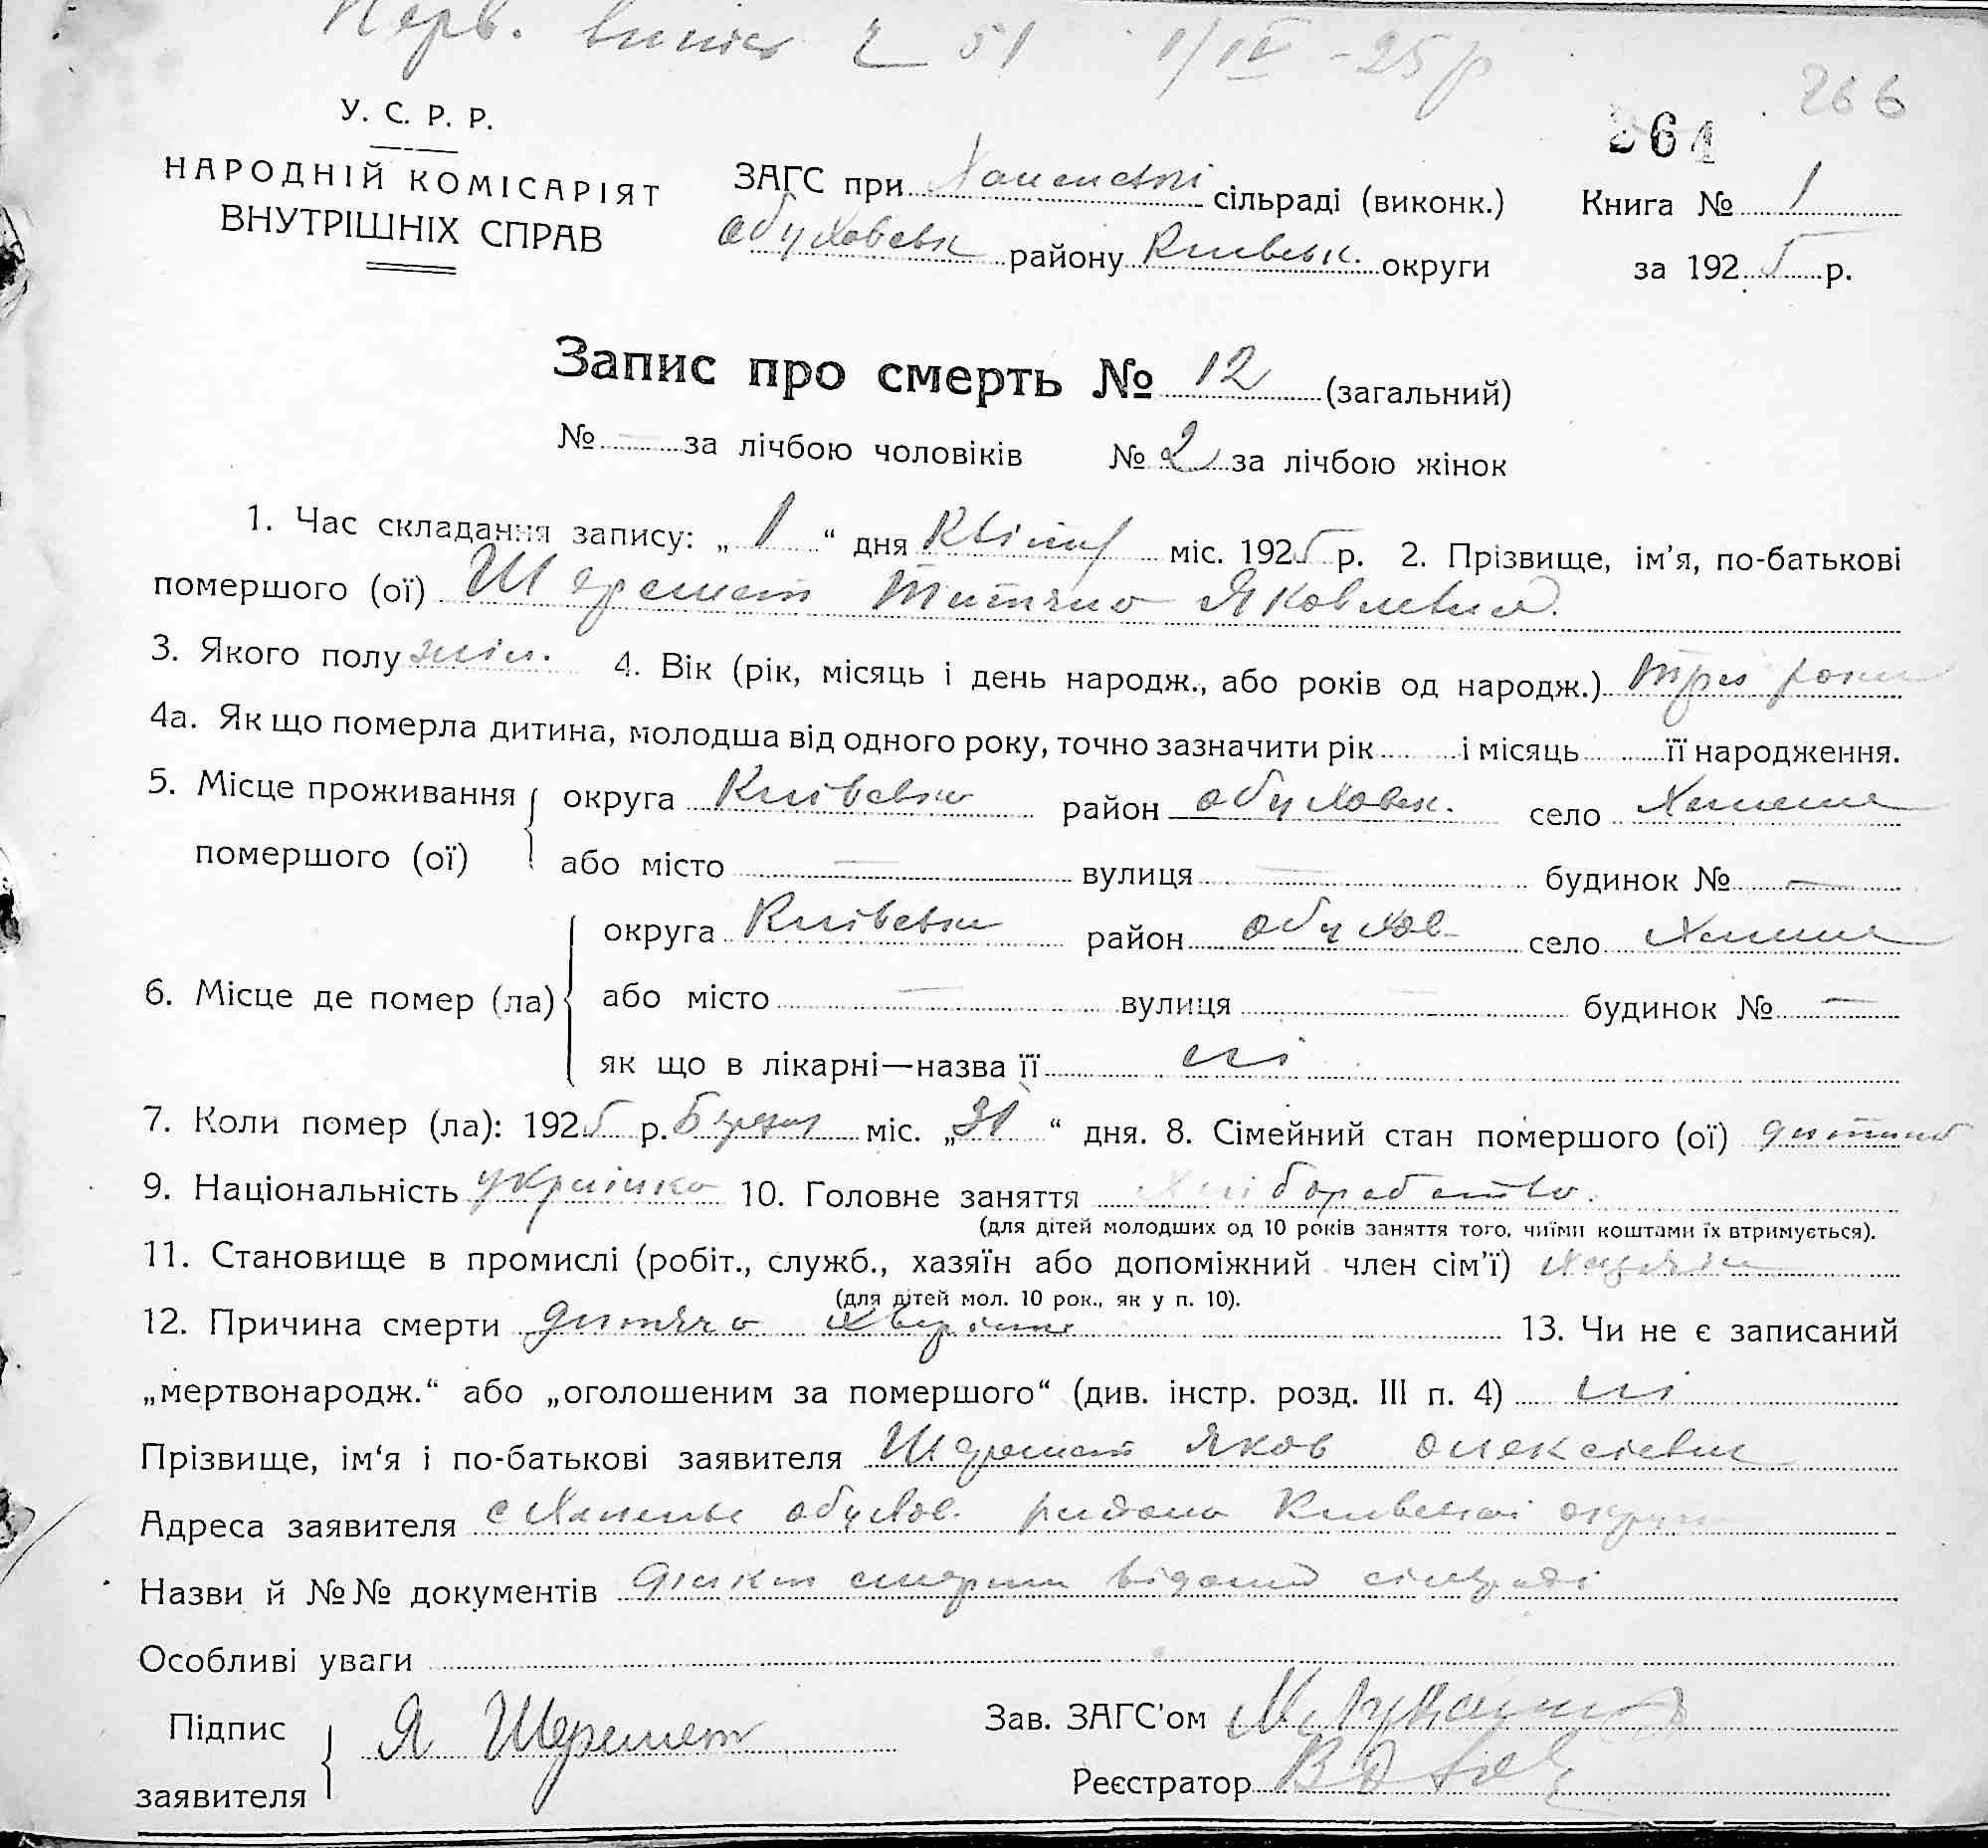 Перв. випис ч 51 1/IV -25 р
266
У. С. Р. Р.
264
НАРОДНІЙ КОМІСАРІЯТ
ВНУТРІШНІХ СПРАВ
ЗАГС при Ханенській сільраді (виконк.) Книга № 1
Обуховськ району Київськ. округи за 1925 р.
Запис про смерть № 12 (загальний)
№ — за лічбою чоловіків № 2 за лічбою жінок
1. Час складання запису: „ 1 “ дня Квітня міс. 1925 р. 2. Прізвище, ім'я, по-батькові
помершого (ої) Шеремет Титяна Яковлевна.
3. Якого полу жін. 4. Вік (рік, місяць і день народж., або років од народж.) три роки
4а. Як що померла дитина, молодша від одного року, точно зазначити рік і місяць її народження.
5. Місце проживання округа Київська район Обуховськ. село
помершого (ої) або місто — вулиця — будинок № —
округа Київська район Обухов село
6. Місце де помер (ла) або місто — вулиця — будинок № —
як що в лікарні—назва її ні
7. Коли помер (ла): 1925 р. Березня міс. „31“ дня. 8. Сімейний стан помершого (ої) дитина
9. Національність українка 10. Головне заняття хліборобство.
(для дітей молодших од 10 років заняття того, чиїми коштами їх втримується).
11. Становище в промислі (робіт., служб., хазяїн або допоміжний член сім'ї) хазяїн
(для дітей мол. 10 рок., як у п. 10).
12. Причина смерти дитяча 13. Чи не є записаний
„мертвонародж.“ або „оголошеним за помершого“ (див. інстр. розд. III п. 4) ні
Прізвище, ім'я і по-батькові заявителя Шеремет Яков Олексієвич
Адреса заявителя с Обухов. района Київської округи
Назви й №№ документів смерти виданий сільраді
Особливі уваги
Підпис заявителя Я Шеремет
Зав. ЗАГС'ом
Реєстратор